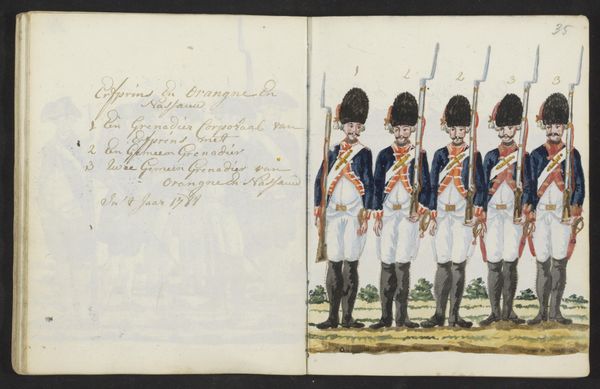 Erfprins En Orangne En
Nassauw
1 Een Grenadier Corporaal van
Erfprins met
2 Een Gemeen Grenadier
3 twee Gemeen Grenadier van
Orangne En Nassauw
In 't Jaar
35
1 2 2 3 3